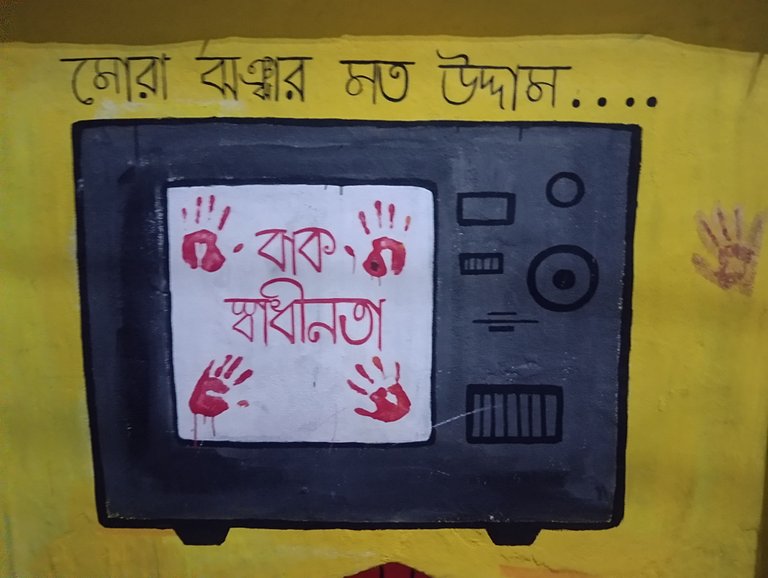 মোরা ঝঞ্ঝার মত উদ্দাম....
বাক
স্বাধীনতা